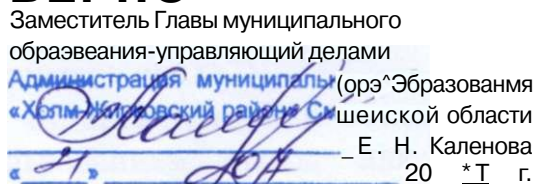 Заместитель Главы муниципального
обраэвеания-управляющий делами
Администрация муниципаль(орэ^Эбразованмя
«Холм-Жирковский район» Смшеиской области
_ Е. Н. Каленова
« 21 » 20 *Т г.